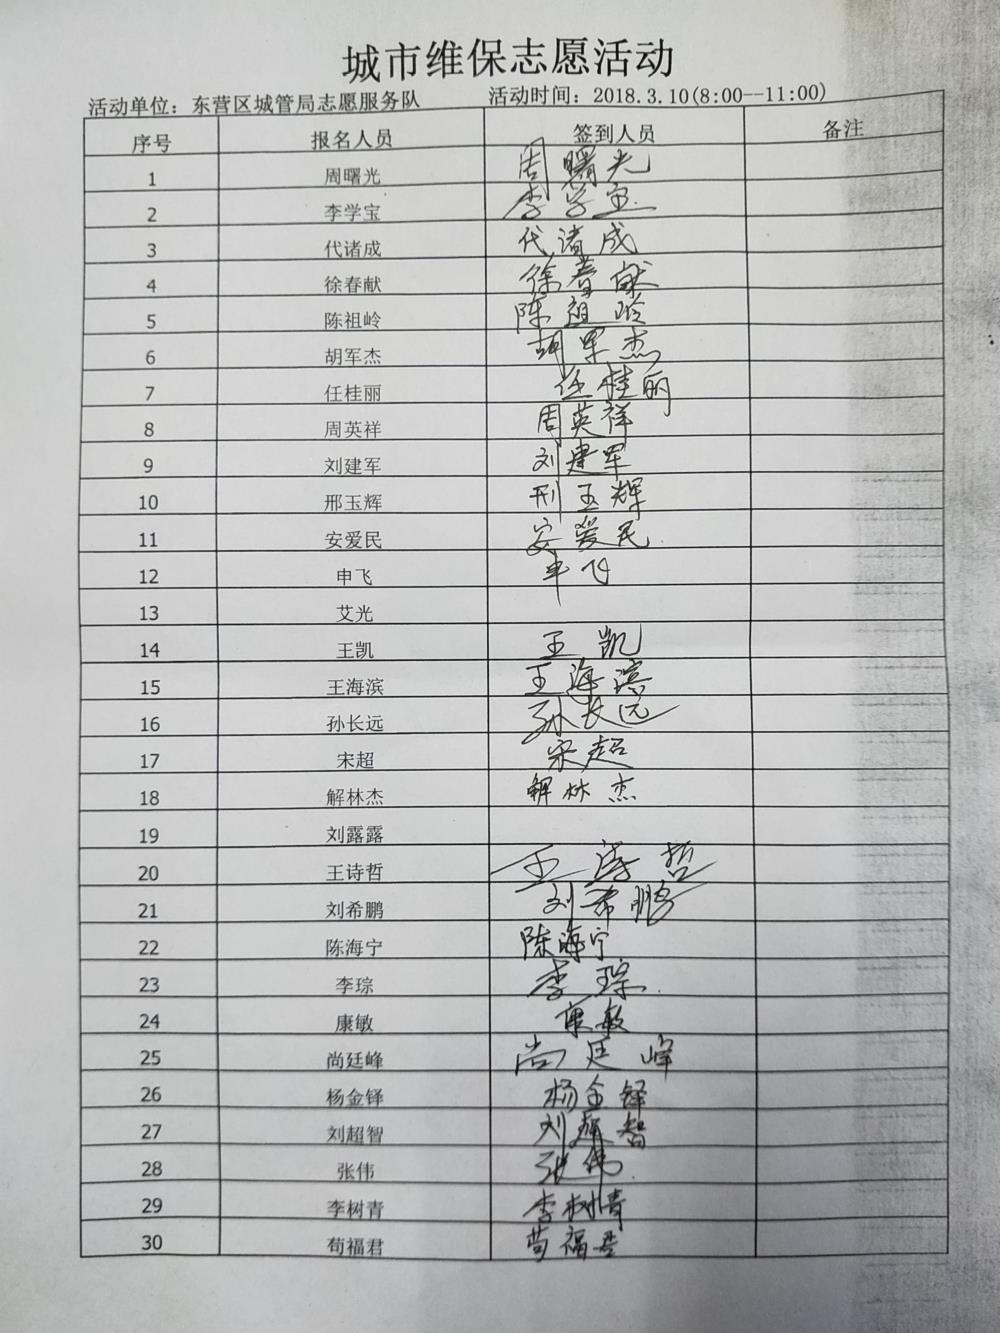 城市维保志愿活动
活动单位：东营区城管局志愿服务队 活动时间：2018.3.10(8:00--11:00)
序号 报名人员 签到人员 备注
1 周曙光 周曙光
2 李学宝 李学宝
3 代诸成 代诸成
4 徐春献 徐春献
5 陈祖岭 陈祖岭
6 胡军杰 胡军杰
7 任桂丽 任桂丽
8 周英祥 周英祥
9 刘建军 刘建军
10 邢玉辉 邢玉辉
11 安爱民 安爱民
12 申飞 申飞
13 艾光
14 王凯 王凯
15 王海滨 王海滨
16 孙长远 孙长远
17 宋超 宋超
18 解林杰 解林杰
19 刘露露
20 王诗哲 王诗哲
21 刘希鹏 刘希鹏
22 陈海宁 陈海宁
23 李琮 李琮
24 康敏 康敏
25 尚廷峰 尚廷峰
26 杨金铎 杨金铎
27 刘超智 刘超智
28 张伟 张伟
29 李树青 李树青
30 荀福君 荀福君